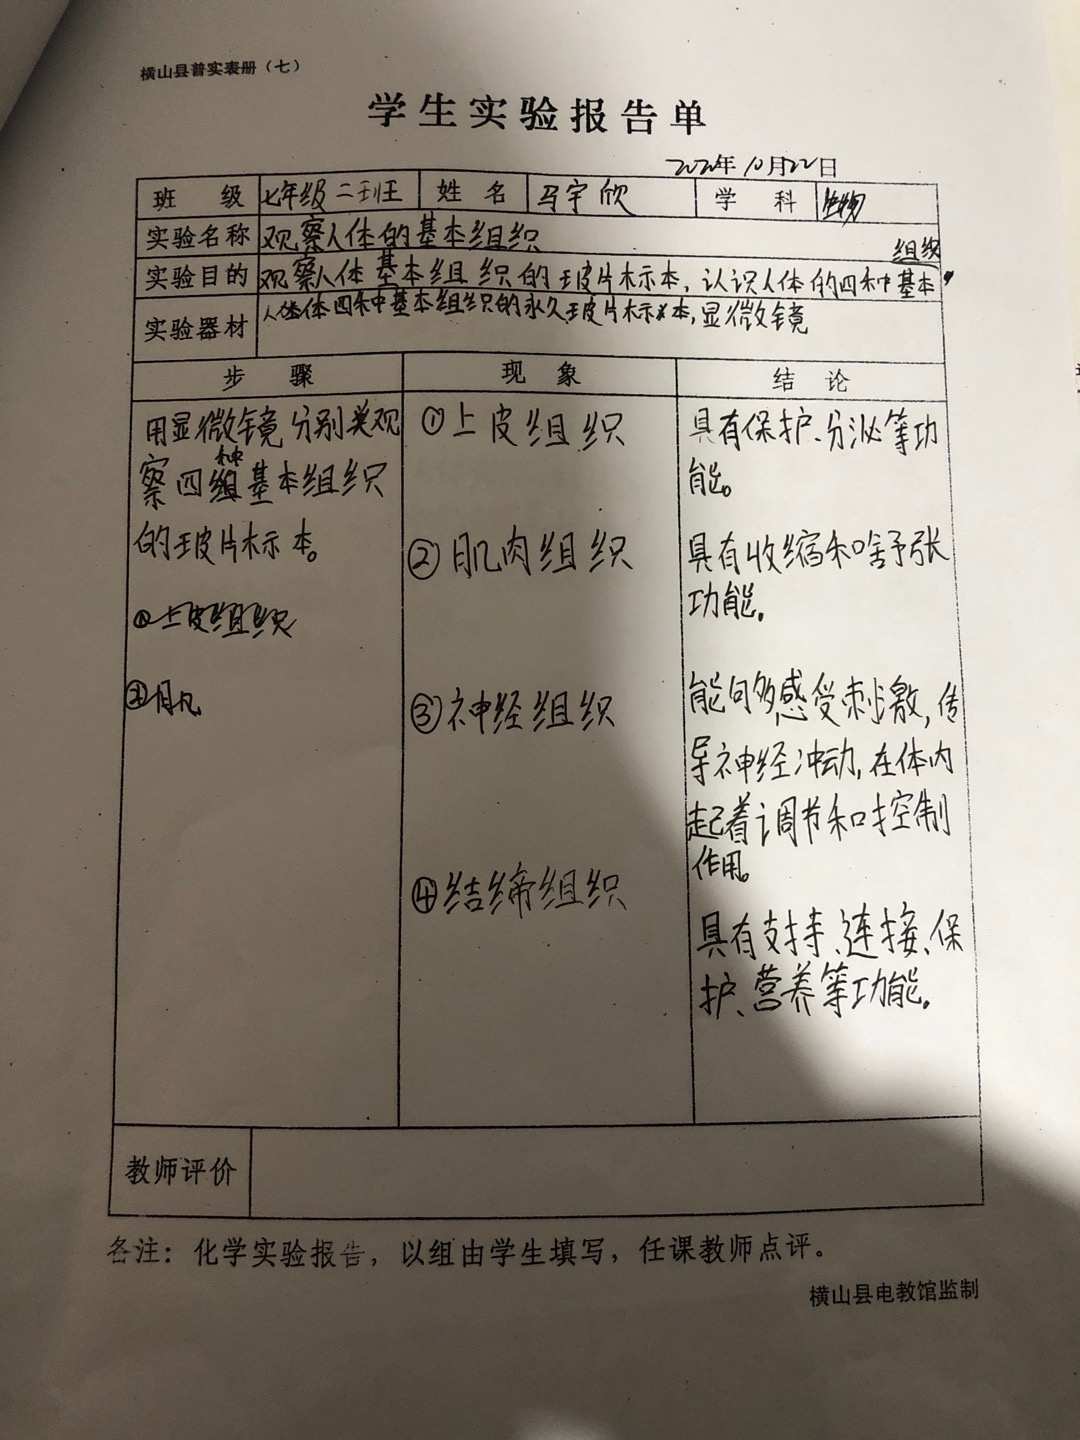 横山县普实表册（七）
学生实验报告单
2020年10月22日
班 级 七年级二班 姓 名 马宇欣 学 科 生物
实验名称 观察人体的基本组织
组织
实验目的 观察人体基本组织的玻片标本，认识人体的四种基本
实验器材 人体四种基本组织的永久玻片标本，显微镜
步 骤 现 象 结 论
用显微镜分别观
察四种基本组织
的玻片标本。
①上皮组织
②肌
①上皮组织
②肌肉组织
③神经组织
④结缔组织
具有保护、分泌等功
能。
具有收缩和舒张
功能。
能够感受刺激，传
导神经冲动，在体内
起着调节和控制
作用。
具有支持、连接、保
护、营养等功能。
教师评价
各注：化学实验报告，以组由学生填写，任课教师点评。
横山县电教馆监制